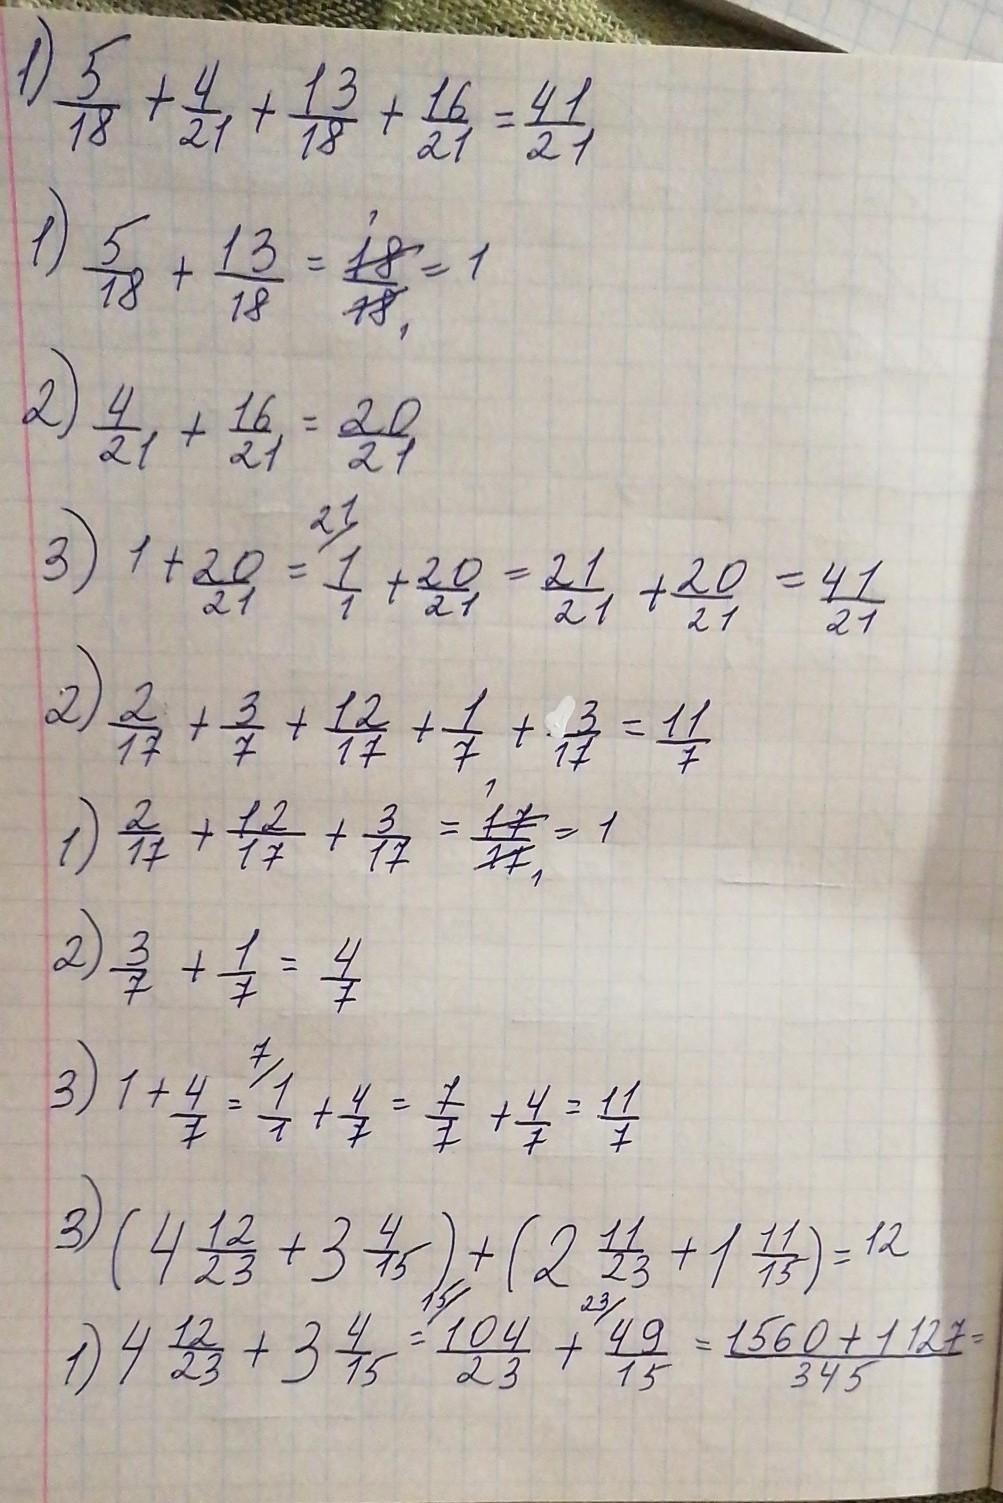 1) 5/18 + 4/21 + 13/18 + 16/21 = 41/21
1) 5/18 + 13/18 = 18/18 = 1
2) 4/21 + 16/21 = 20/21
3) 1 + 20/21 = 1/1 + 20/21 = 21/21 + 20/21 = 41/21
2) 2/17 + 3/7 + 12/17 + 1/7 + 3/17 = 11/7
1) 2/17 + 12/17 + 3/17 = 17/17 = 1
2) 3/7 + 1/7 = 4/7
3) 1 + 4/7 = 1/1 + 4/7 = 7/7 + 4/7 = 11/7
3) (4 12/23 + 3 4/15) + (2 11/23 + 1 11/15) = 12
1) 4 12/23 + 3 4/15 = 104/23 + 49/15 = 1560 + 1127/345 =